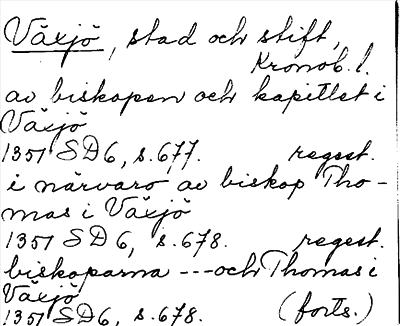 Växjö, stad och stift,
Kronob. l.
av biskopen och kapitlet i
Växjö
1351 SD 6, s. 677. regest.
i närvaro av biskop Tho-
mas i Växjö
1351 SD 6, s. 678. regest.
biskoparna --- och Thomas i
Växjö
1351 SD 6, s. 678. (forts.)